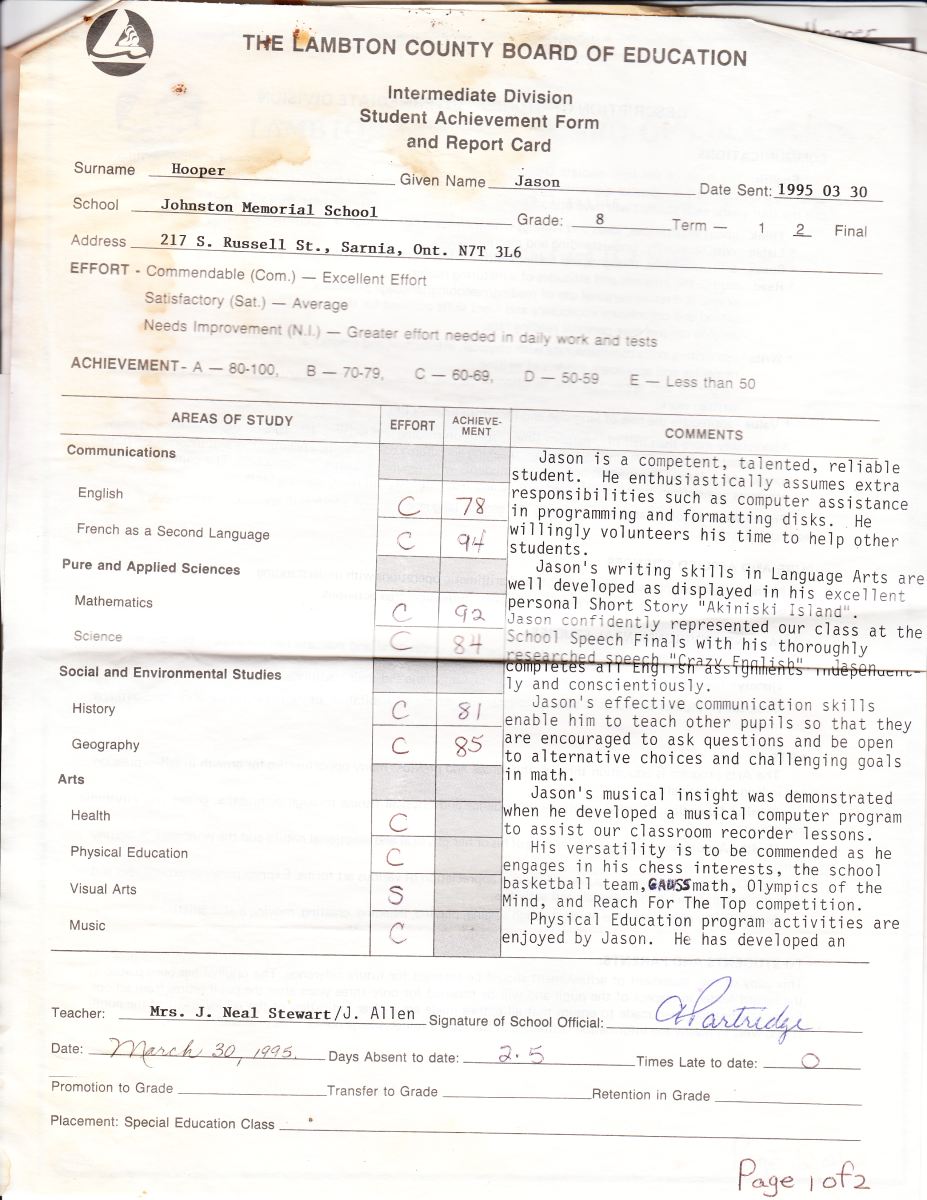 THE LAMBTON COUNTY BOARD OF EDUCATION
Intermediate Division
Student Achievement Form
and Report Card
Surname Hooper Given Name Jason Date Sent: 1995 03 30
School Johnston Memorial School Grade: 8 Term — 1 2 Final
Address 217 S. Russell St., Sarnia, Ont. N7T 3L6
EFFORT - Commendable (Com.) — Excellent Effort
Satisfactory (Sat.) — Average
Needs Improvement (N.I.) — Greater effort needed in daily work and tests
ACHIEVEMENT- A — 80-100, B — 70-79, C — 60-69, D — 50-59 E — Less than 50
AREAS OF STUDY EFFORT ACHIEVE-
MENT COMMENTS
Communications
English C 78
French as a Second Language C 94
Pure and Applied Sciences
Mathematics C 92
Science C 84
Social and Environmental Studies
History C 81
Geography C 85
Arts
Health C
Physical Education C
Visual Arts S
Music C
Jason is a competent, talented, reliable
student. He enthusiastically assumes extra
responsibilities such as computer assistance
in programming and formatting disks. He
willingly volunteers his time to help other
students.
Jason's writing skills in Language Arts are
well developed as displayed in his excellent
personal Short Story "Akiniski Island".
Jason confidently represented our class at the
School Speech Finals with his thoroughly
researched speech "Crazy English" Jason
completes all English assignments independent-
ly and conscientiously.
Jason's effective communication skills
enable him to teach other pupils so that they
are encouraged to ask questions and be open
to alternative choices and challenging goals
in math.
Jason's musical insight was demonstrated
when he developed a musical computer program
to assist our classroom recorder lessons.
His versatility is to be commended as he
engages in his chess interests, the school
basketball team, GAUSS math, Olympics of the
Mind, and Reach For The Top competition.
Physical Education program activities are
enjoyed by Jason. He has developed an
Teacher: Mrs. J. Neal Stewart/J. Allen Signature of School Official: A Partridge
Date: March 30, 1995. Days Absent to date: 2.5 Times Late to date: 0
Promotion to Grade Transfer to Grade Retention in Grade
Placement: Special Education Class
Page 1 of 2